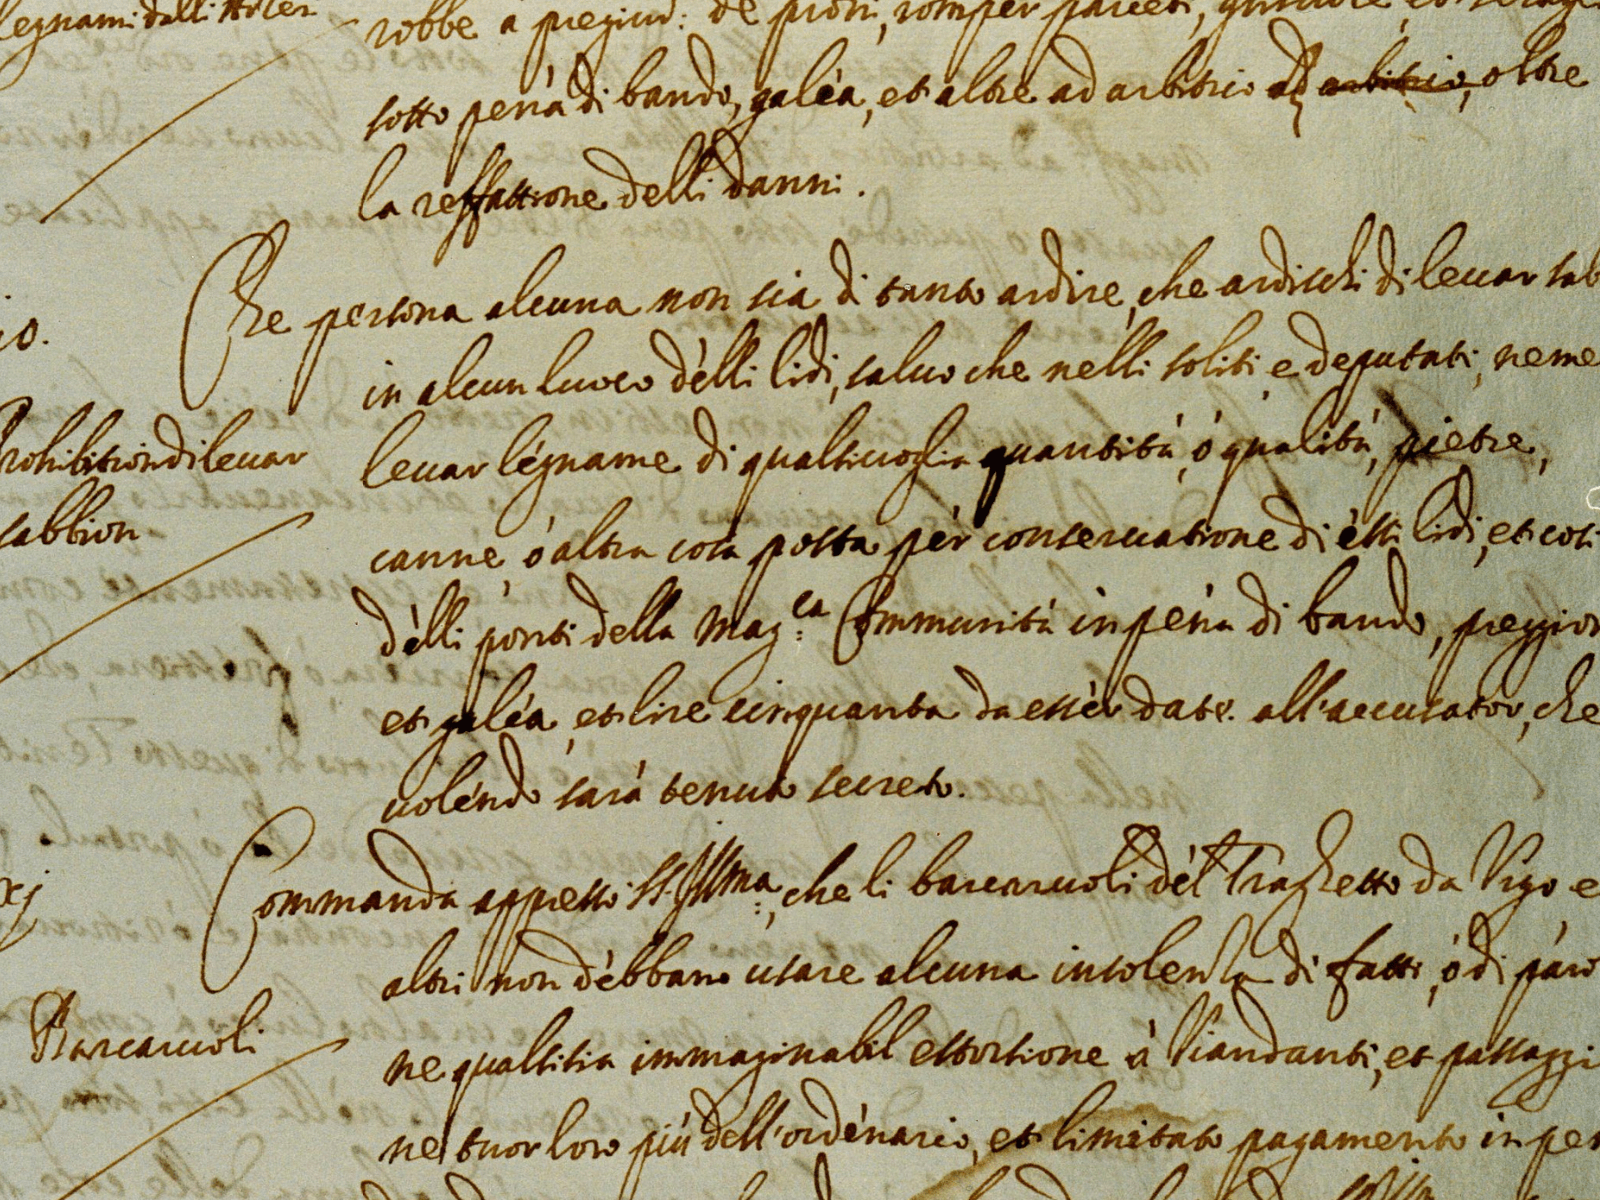 legnami dalli
robbe à pregiud: de proti, romper pareti,
sotto pena di bando, galéa, et altre ad arbitrio ad arbitrio, oltre
la reffattione delli danni.
Che persona alcuna non sia di tanto ardire, che ardischi di levar sab
io.
in alcun luoco delli lidi, salvo che nelli soliti, e deputati, ne me
Prohibition di levar
levar légname di qualsivoglia quantità, ó qualità, pietre,
sabbion
canne, ó altra cosa posta pér conservatione di essi lidi, et cosi
délli ponti della Mag:ca Communità in péna di bando, preggion
et galéa, et lire cinquanta da esser date all'accusator, che
voléndo sarà tenuto secreto.
xj
Commanda appresso SS. Illma:, che li barcaruoli dél Traghetto da Vigo e
altri non débbano usare alcuna insolenza di fatti, ó di paro
Barcaruoli
ne qualsisia immaginabil estortione à Viandanti, et passaggi
ne tuor loro più dell'ordénario, et limitato pagamento in pen